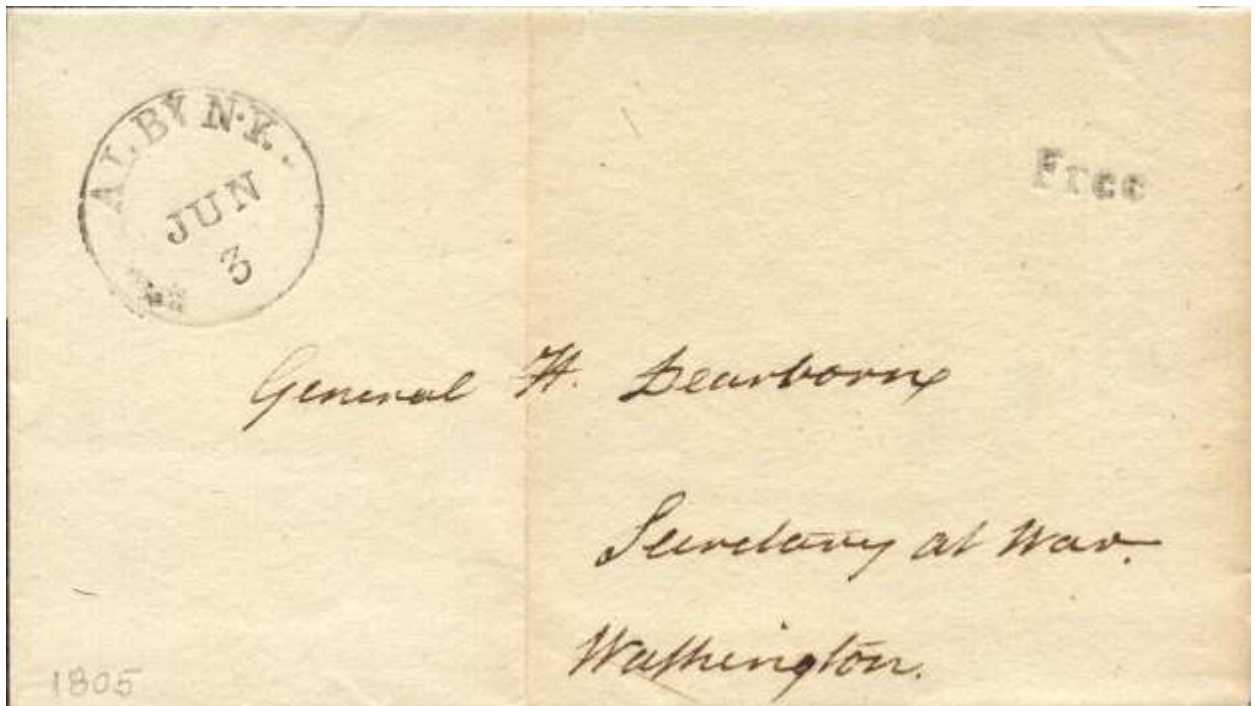 ALBY N·Y.
JUN
3
Free
General H. Dearborn
Secretary at War.
Washington.
1805